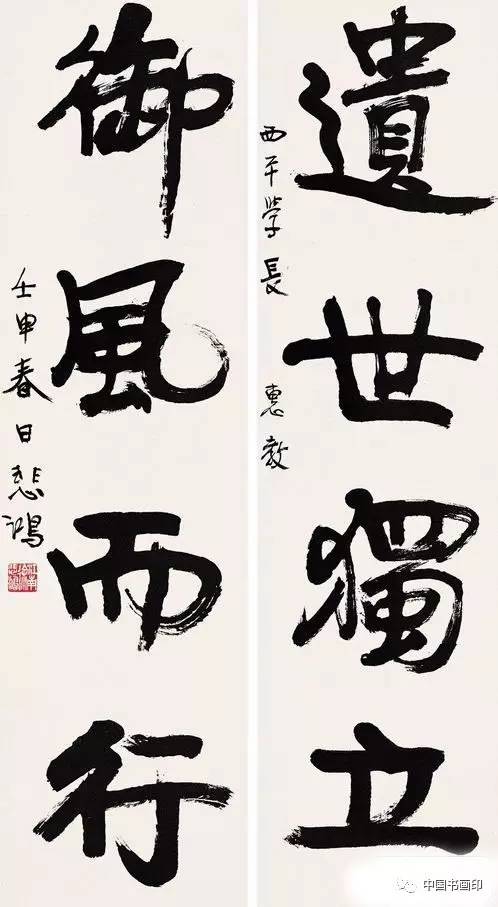 遺世獨立
西平學長 惠教
御風而行
壬申春日 悲鴻
中国书画印